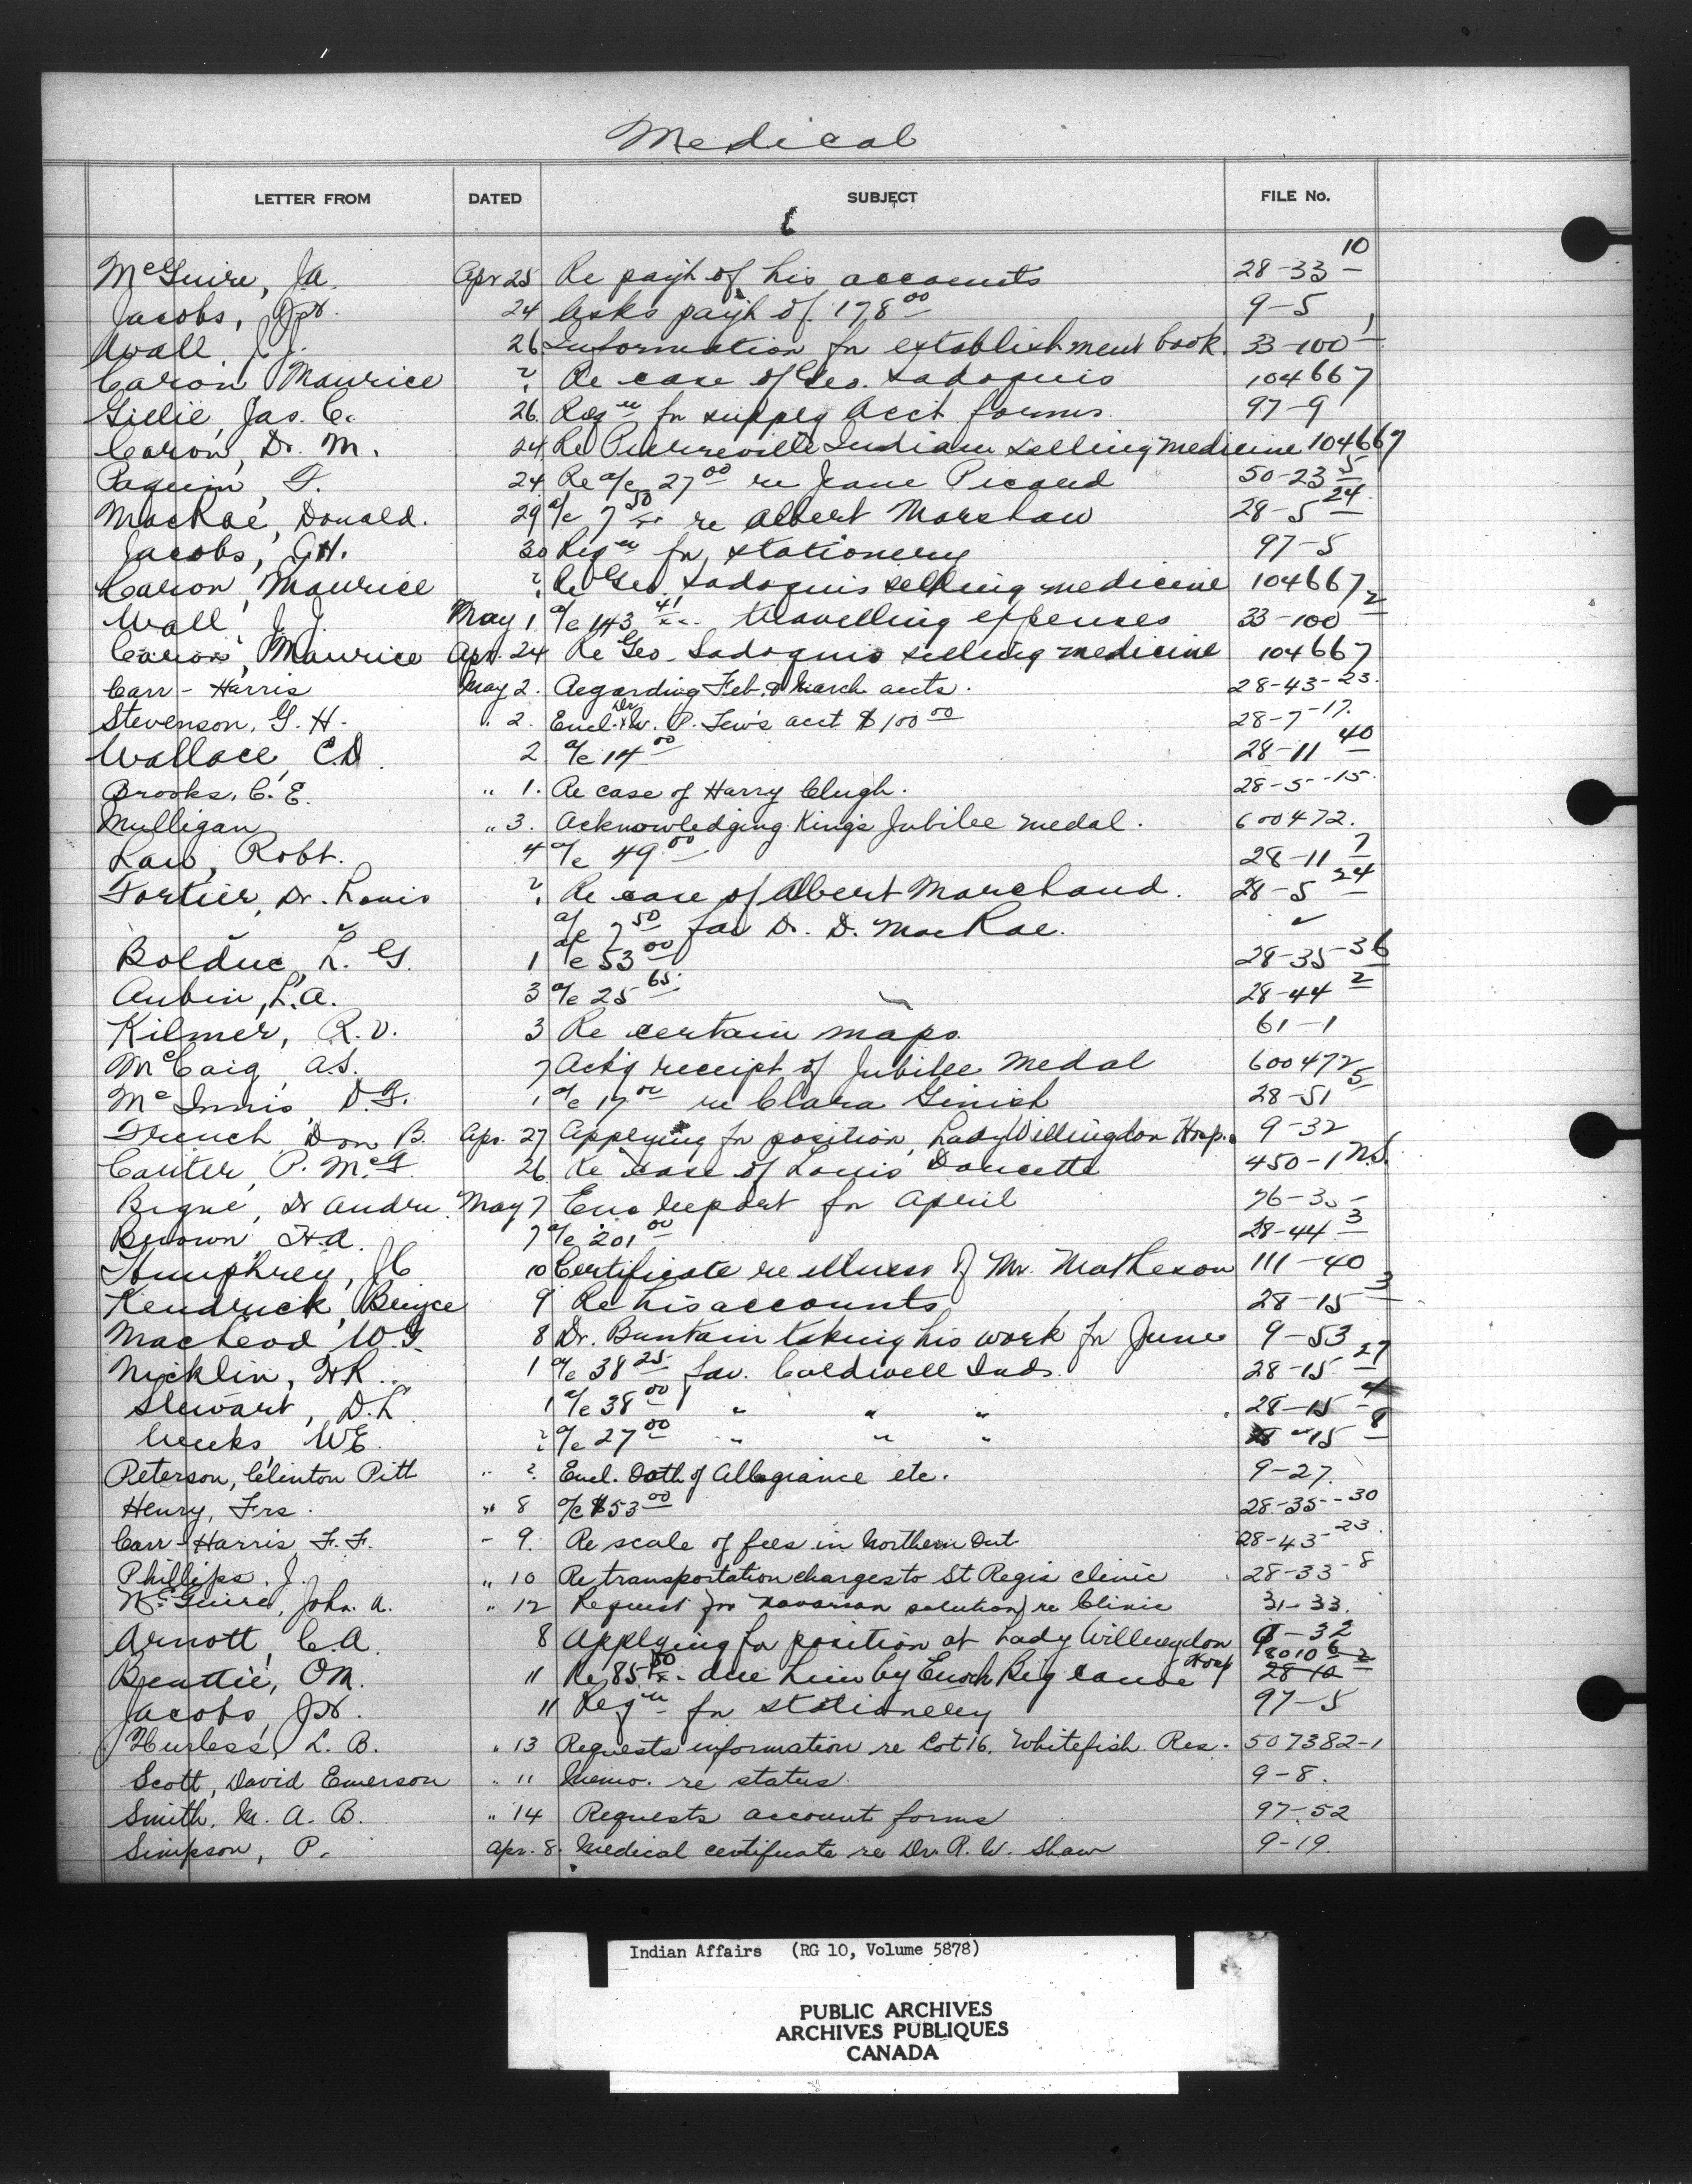 Medical
LETTER FROM DATED SUBJECT FILE No.
McGuire, J.A. Apr 25 Re paym't of his accounts 28-33-10
Jacobs, 24 Asks paym't of 178 00 9-5
Wall, J.J. 26 Information for establishment book. 33-100-1
Caron Maurice ? Re case of Geo. Sadoquis 104667
Gillie, Jas. C. 26 Reqn for supply Acct forms 97-9
Caron, Dr. M. 24 Re Pierreville Indians selling medicine 104667
Paquin, F. 24 Re a/c 27 00 re Jeane Picard 50-23-5
MacRae, Donald. 29 a/c 7 50 re Albert Marshaw 28-5-24
Jacobs, G.H. 30 Reqn for stationery 97-5
Caron, Maurice ? Re Geo. Sadoquis selling medicine 104667
Wall, J.J. May 1 a/c 143 41 travelling expenses 33-100-2
Caron, Maurice Apr. 24 Re Geo. Sadoquis selling medicine 104667
Carr-Harris May 2. Regarding Feb. & March accts. 28-43-23.
Stevenson, G. H. " 2. Encl. Dr. W. P. Tew's acct $100 00 28-7-17.
Wallace, C.D. 2 a/c 14 00 28-11-40
Brooks, C. E. " 1. Re case of Harry Clugh. 28-5-15.
Mulligan " 3. Acknowledging King's Jubilee medal. 600472.
Law, Robt. 4 a/c 49 00 28-11-7
Fortier, Dr. Louis ? Re case of Albert Marchand. 28-5-24
" " a/c 7 50 fav Dr. D. MacRae. "
Bolduc, L. G. 1 a/c 53 00 28-35-36
Aubin, L.A. 3 a/c 25 65 28-44-2
Kilmer, R.V. 3 Re certain maps 61-1
McCaig, A.S. 7 Ack'g receipt of Jubilee Medal 600472
McInnis, D.F. 1 a/c 17 00 re Clara Ginish 28-51-5
French, Don B. Apr. 27 Applying for position, Lady Willingdon Hosp. 9-32
Canter, P. McF. 26 Re case of Louis Doucette 450-1 N.S.
Bigué, Dr Andre. May 7 Enc Report for April
Brown, H.A. 7 a/c 201 00 28-44-3
Humphrey, J.C. 10 Certificate re illness of Mr. Matheson 111-40
Kendrick, Bruyce 9 Re his accounts 28-15-3
MacLeod W.F. 8 Dr. Buntain taking his work for June 9-53
Nicklin, H.R. 1 a/c 38 25 fav. Caldwell Inds. 28-15-27
Stewart, D.L. 1 a/c 38 00 " " " 28-15
Weeks, W.E. ? a/c 27 00 " " " 28-15-8
Peterson, Clinton Pitt " ?. Encl. Oath of Allegiance etc. 9-27.
Henry, Frs. " 8 a/c $53 00 28-35-30
Carr-Harris F. F. " 9. Re scale of fees in Northern Ont. 28-43-23.
Phillips. J. " 10 Re transportation charges to St Regis clinic 28-33-8
McGuire, John. A. " 12 Request for novarsan solution re Clinic 31-33.
Arnott, C.A. 8 Applying for position at Lady Willingdon Hosp 9-32
Beattie, O.M. 11 Re 85 50 due him by Enoch Big canoe 18010-6 28-10-2
Jacobs, 11 Reqn for stationery 97-5
Hurless, L. B. " 13 Requests information re Lot 16, Whitefish Res. 507382-1
Scott, David Emerson " 11 Memo. re status 9-8.
Smith, M. A. B. " 14 Requests account forms 97-52
Simpson, P. Apr. 8. Medical certificate re Dr. R. W. Shaw 9-19.
Indian Affairs (RG 10, Volume 5878)
PUBLIC ARCHIVES
ARCHIVES PUBLIQUES
CANADA